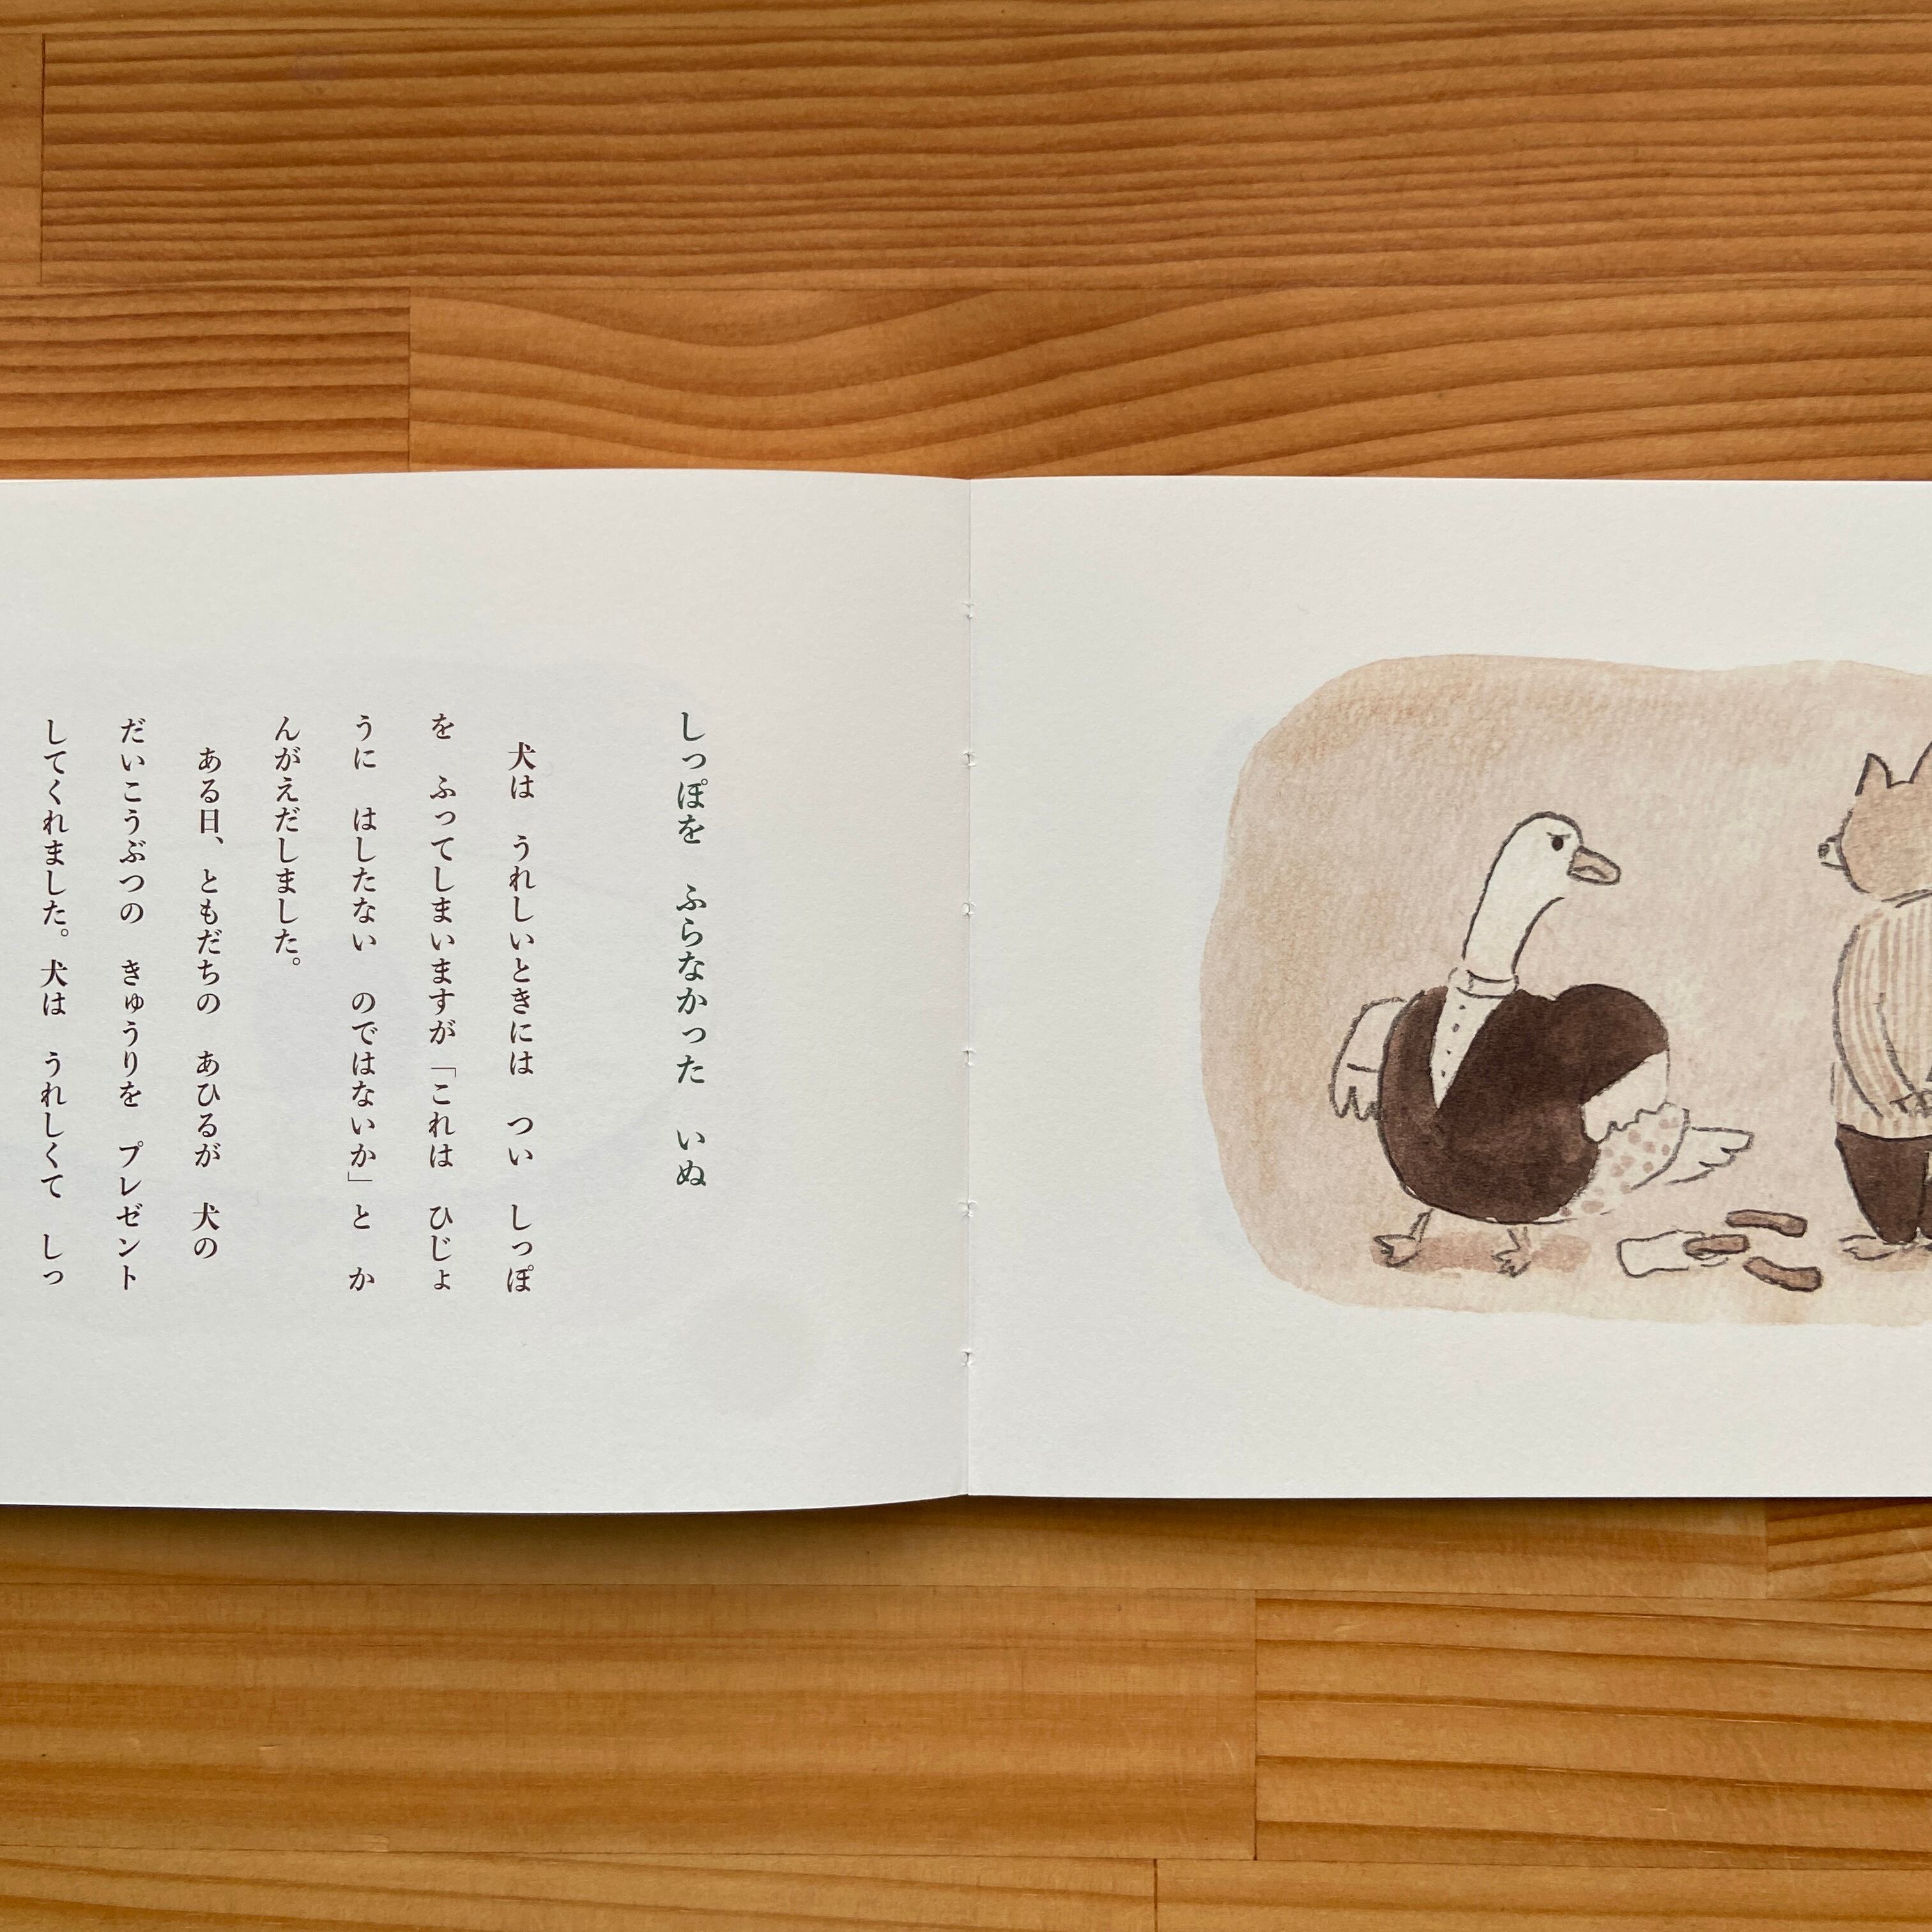 しっぽを　ふらなかった　いぬ
犬は　うれしいときには　つい　しっぽ
を　ふってしまいますが「これは　ひじょ
うに　はしたない　のではないか」と　か
んがえだしました。
ある日、ともだちの　あひるが　犬の
だいこうぶつの　きゅうりを　プレゼント
してくれました。犬は　うれしくて　しっ